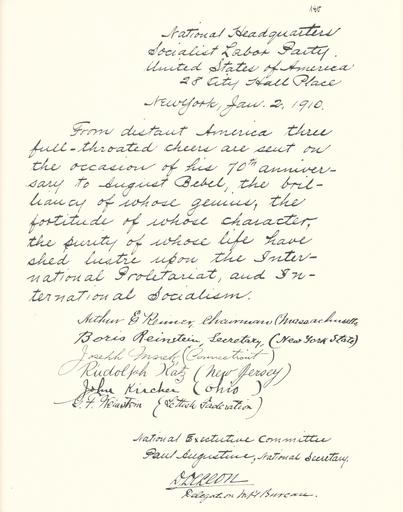 National Headquarters
Socialist Labor Party.
United States of America
28 City Hall Place
New York, Jan. 2, 1910.
From distant America three
full-throated cheers are sent on
the occasion of his 70th anniver-
sary to August Bebel, the bril-
liancy of whose genius, the
fortitude of whose character,
the purity of whose life have
shed lustre upon the Inter-
national Proletariat, and In-
ternational Socialism.
Arthur E. Reimer, Chairman (Massachusetts)
Boris Reinstein, Secretary, (New York State)
Joseph Marek (Connecticut)
Rudolph Katz (New Jersey)
John Kircher (Ohio)
(Lettish Federation)
National Executive Committee
Paul Augustine, National Secretary.
D. De Leon
Delegation Bureau.